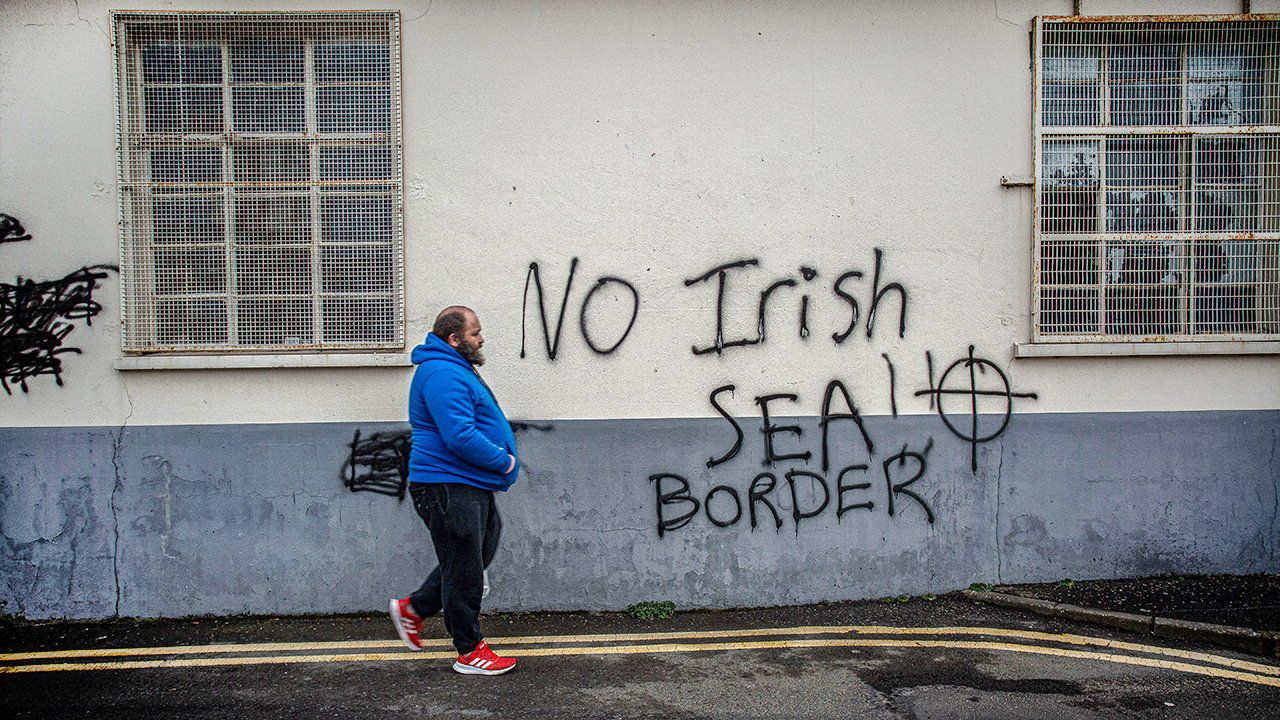 No Irish
SEA
BORDER